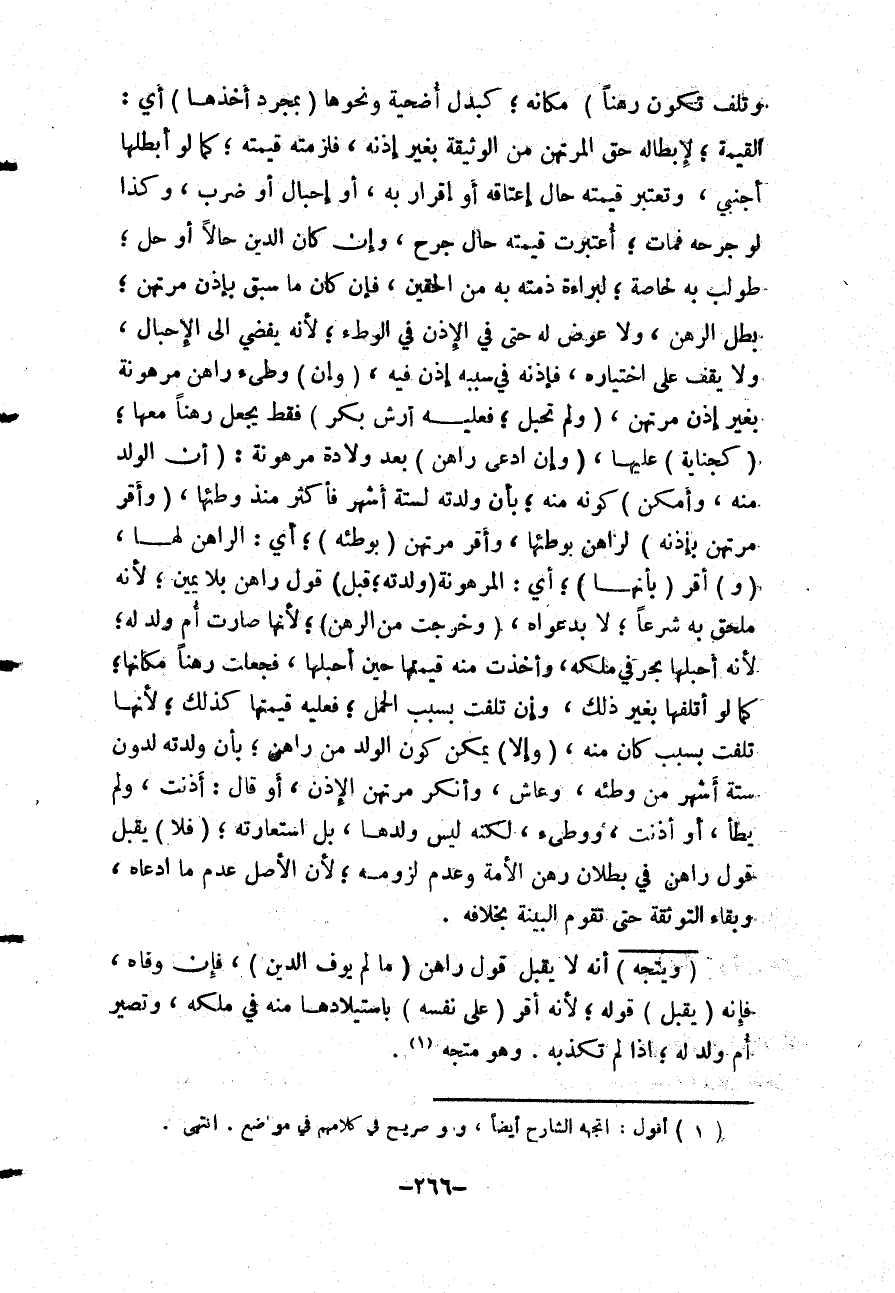 وتلف تكون رهناً ) مكانه ؛ كبدل أُضحية ونحوها ( بمجرد أخذهـا ) أي :
القيمة ؛ لإبطاله حق المرتهن من الوثيقة بغير إذنه ، فلزمته قيمته ؛ كما لو أبطلها
أجنبي ، وتعتبر قيمته حال إعتاقه أو إقرار به ، أو إحبال أو ضرب ، وكذا
لو جرحه فمات ؛ أُعتبرت قيمته حال جرح ، وإن كان الدين حالاً أو حل ؛
طولب به خاصة ؛ لبراءة ذمته به من الحقين ، فإن كان ما سبق بإذن مرتهن ؛
بطل الرهن ، ولا عوض له حتى في الإذن في الوطء ؛ لأنه يفضي الى الإحبال ،
ولا يقف على اختياره ، فإذنه في سببه إذن فيه ، ( وان ) وطىء راهن مرهونة
بغير إذن مرتهن ، ( ولم تحبل ؛ فعليـــه أرش بكر ) فقط يجعل رهناً معها ؛
( كجناية ) عليهـا ، ( وإن ادعى راهن ) بعد ولادة مرهونة : ( أن الولد
منه ، وأمكن ) كونه منه ؛ بأن ولدته لستة أشهر فأكثر منذ وطئها ، ( وأقر
مرتهن بإذنه ) لراهن بوطئها ، وأقر مرتهن ( بوطئه ) ؛ أي : الراهن لهـــا ،
( و ) أقر ( بأنهـــا ) ؛ أي : المرهونة ( ولدته ؛ قبل ) قول راهن بلا يمين ؛ لأنه
ملحق به شرعاً ؛ لا بدعواه ، ( وخرجت من الرهن ) ؛ لأنها صارت أُم ولد له ؛
لأنه أحبلها بحر في ملكه ، وأخذت منه قيمتها حين أحبلها ، فجعلت رهناً مكانها ؛
كما لو أتلفها بغير ذلك ، وإن تلفت بسبب الحمل ؛ فعليه قيمتها كذلك ؛ لأنهـا
تلفت بسبب كان منه ، ( وإلا ) يمكن كون الولد من راهن ؛ بأن ولدته لدون
ستة أشهر من وطئه ، وعاش ، وأنكر مرتهن الإذن ، أو قال : أذنت ، ولم
يطأ ، أو أذنت ، ووطىء ، لكنه ليس ولدهـا ، بل استعارته ؛ ( فلا ) يقبل
قول راهن في بطلان رهن الأمة وعدم لزومـه ؛ لأن الأصل عدم ما ادعاه ،
وبقاء التوثقة حتى تقوم البينة بخلافه .
( ويتجه ) أنه لا يقبل قول راهن ( ما لم يوف الدين ) ، فإن وفاه ،
فإنه ( يقبل ) قوله ؛ لأنه أقر ( على نفسه ) باستيلادهـا منه في ملكه ، وتصير
أُم ولد له ؛ اذا لم تكذبه . وهو متجه (١) .
( ١ ) أقول : اتجهه الشارح أيضاً ، و و صريح في كلامهم في مواضع . انتهى .
-٢٦٦-